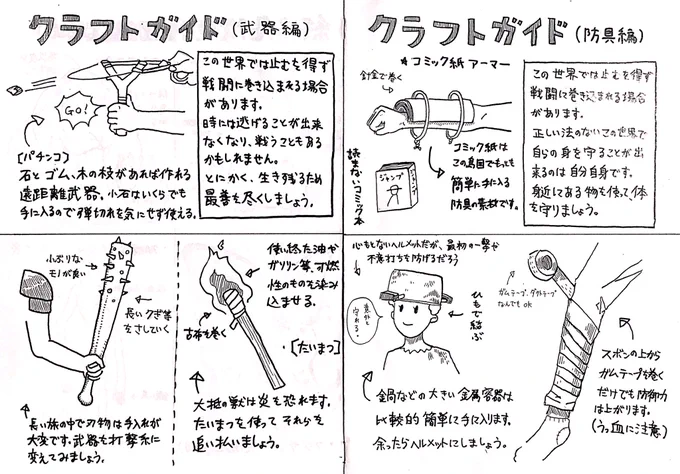 クラフトガイド(武器編)
この世界では止むを得ず
戦闘に巻き込まれる場合
があります。
時には逃げることが出来
なくなり、戦うこともある
かもしれません。
とにかく、生き残るため
最善を尽くしましょう。
GO!
[パチンコ]
石とゴム、木の枝があれば作れる
遠距離武器。小石はいくらでも
手に入るので弾切れを気にせず使える。
小ぶりな
モノが良い
長いクギ等
をさしていく
長い旅の中で刃物は手入れが
大変です。武器も打撃系に
変えてみましょう。
使い終えた油や
ガソリン等、可燃
性のものを染み
込ませる。
古布を巻く
[たいまつ]
大抵の獣は炎を恐れます。
たいまつを使ってそれらを
追い払いましょう。
クラフトガイド(防具編)
コミック紙 アーマー
針金で巻く
コミック紙は
この島国でもっても
簡単に手に入る
防具の素材です。
ジャンプ
読まないコミック本
この世界では止むを得ず
戦闘に巻き込まれる場合
があります。
正しい法のないこの世界で
自らの身を守ることが出
来るのは自分自身です。
身近にある物を使って、体
を守りましょう。
心もとないヘルメットだが、最初の一撃や
不意打ちを防げるだろう
意外と
守れる。
ひもで結ぶ
金鍋などの大きい金属容器は
比較的簡単に手に入ります。
余ったらヘルメットにしましょう。
ガムテープ、ダクトテープ
なんでもok
ズボンの上から
ガムテープを巻く
だけでも防御力
は上がります。
(うっ血に注意)